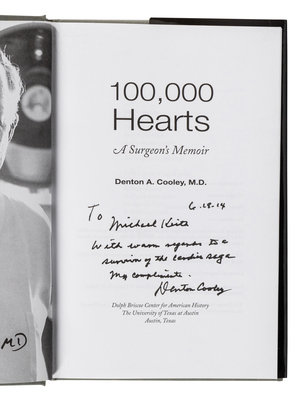 100,000
Hearts
A Surgeon's Memoir
Denton A. Cooley, M.D.
6.18.14
To Michael Keita
With warm regards to a
survivor of the cardiac saga
My compliments.
Denton Cooley
Dolph Briscoe Center for American History
The University of Texas at Austin
Austin, Texas
MD